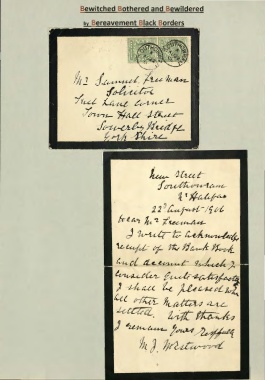 Bewitched Bothered and Bewildered
by Bereavement Black Borders
Mr Samuel Freeman
Solicitor
Lane Corner
Town Hall Street
Sowerby Bridge
Yorkshire
New Street
Southowram
Nr Halifax
22nd August 1906
Dear Mr Freeman
I write to acknowledge
receipt of the Bank Book
and account which I
consider quite satisfactory
I shall be pleased when
all other matters are
settled. With thanks
I remain Yours Respfully
M. J. Westwood